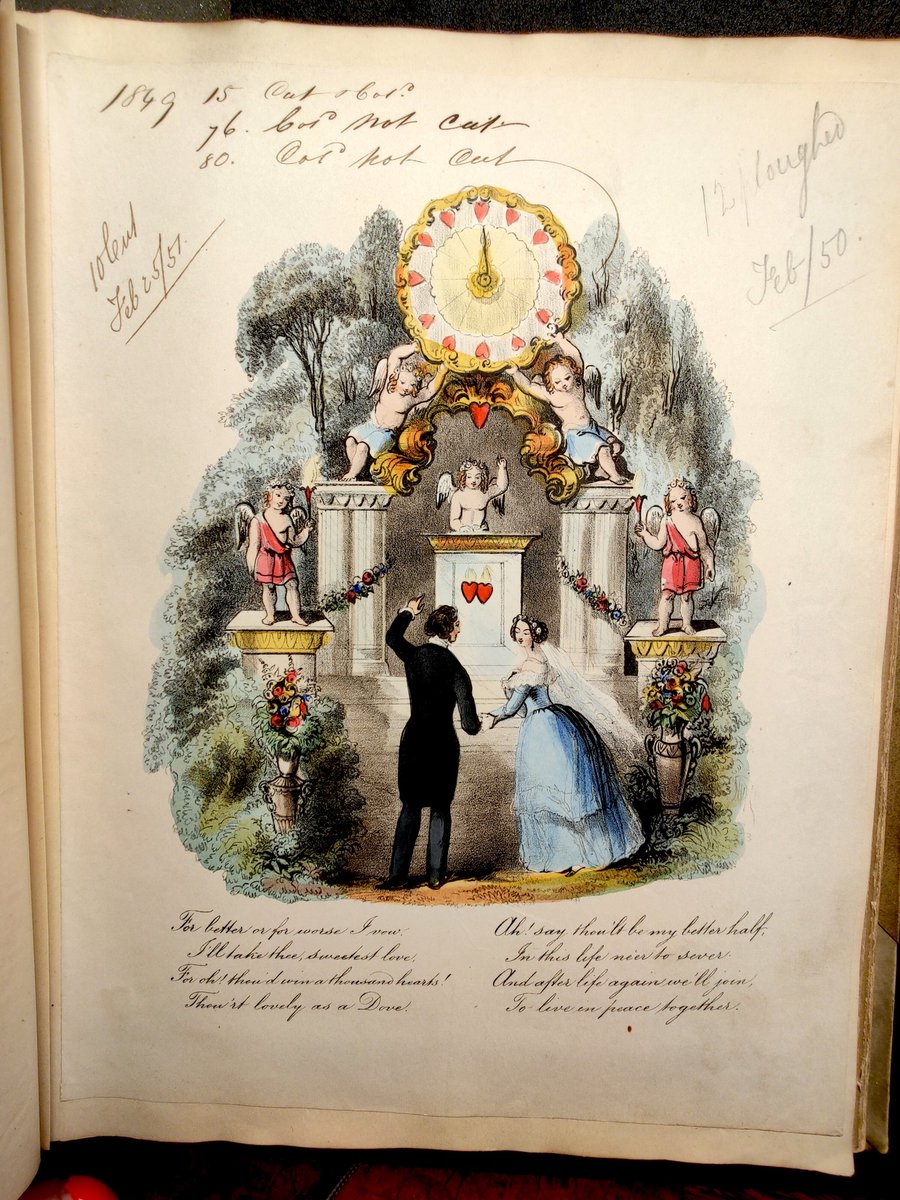 1849 15 Cut & Colᵈ
76. Colᵈ Not Cut
80. Colᵈ Not Cut
12 ploughed
Feb/50.
10 Cut
Feb 25/51.
For better or for worse I vow,
I'll take thee, sweetest love,
For oh! thou'd win a thousand hearts!
Thou'rt lovely as a Dove.
Ah! say thou'lt be my better half,
In this life ne'er to sever.
And after life again we'll join,
To live in peace together.